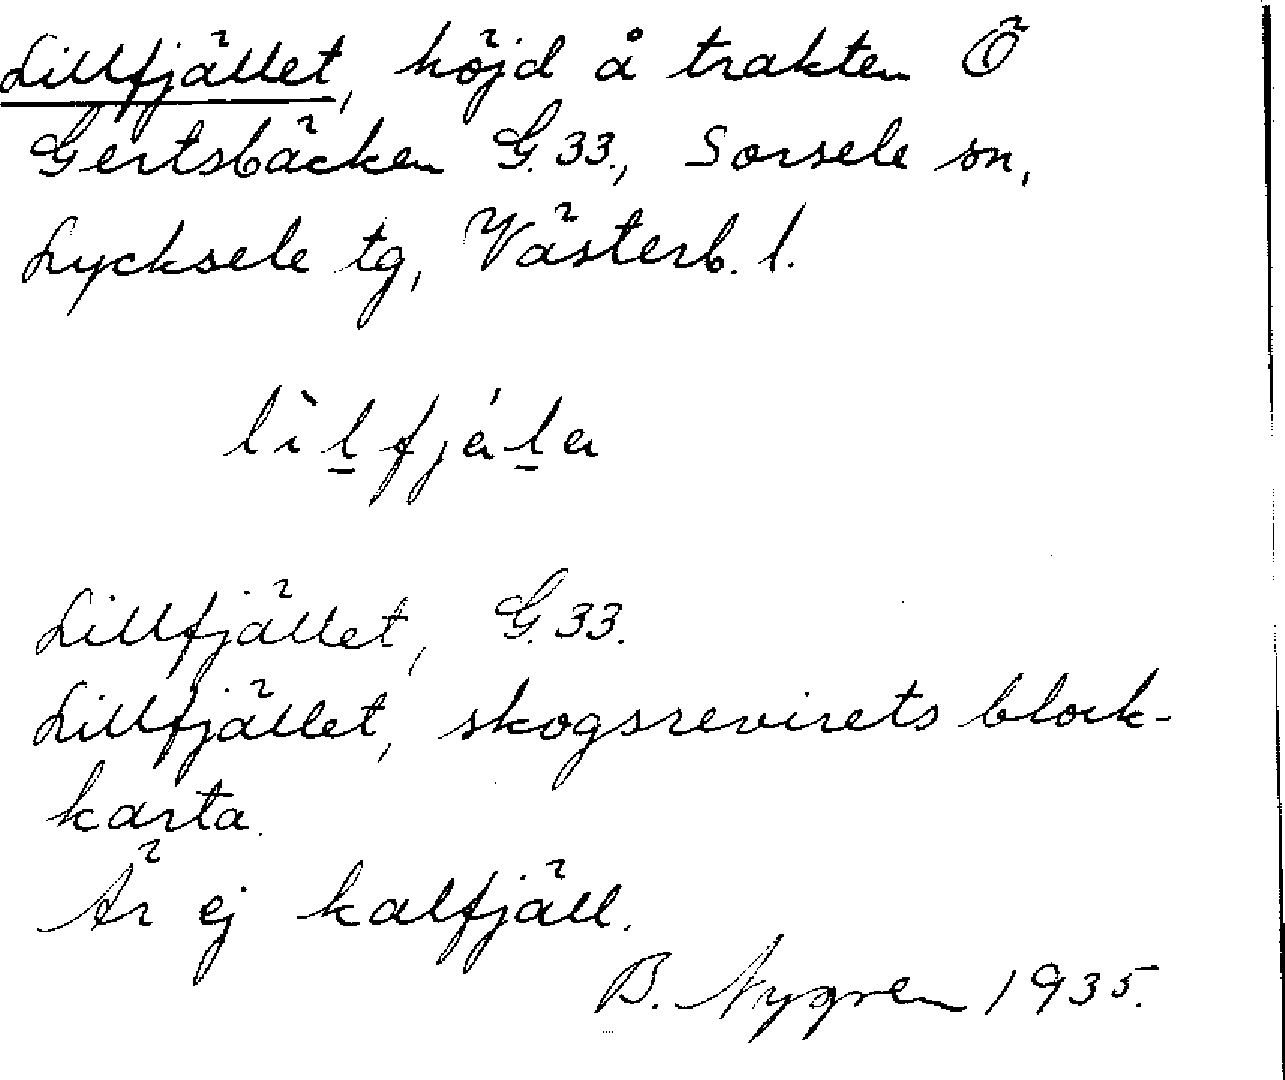 Lillfjället, höjd å trakten Ö
Gertsbäcken G.33., Sorsele sn,
Lycksele tg, Västerb. l.
lìl̲fjál̲a
Lillfjället, G.33.
Lillfjället, skogsrevirets block-
karta.
Är ej kalfjäll.
B. Nygren 1935.